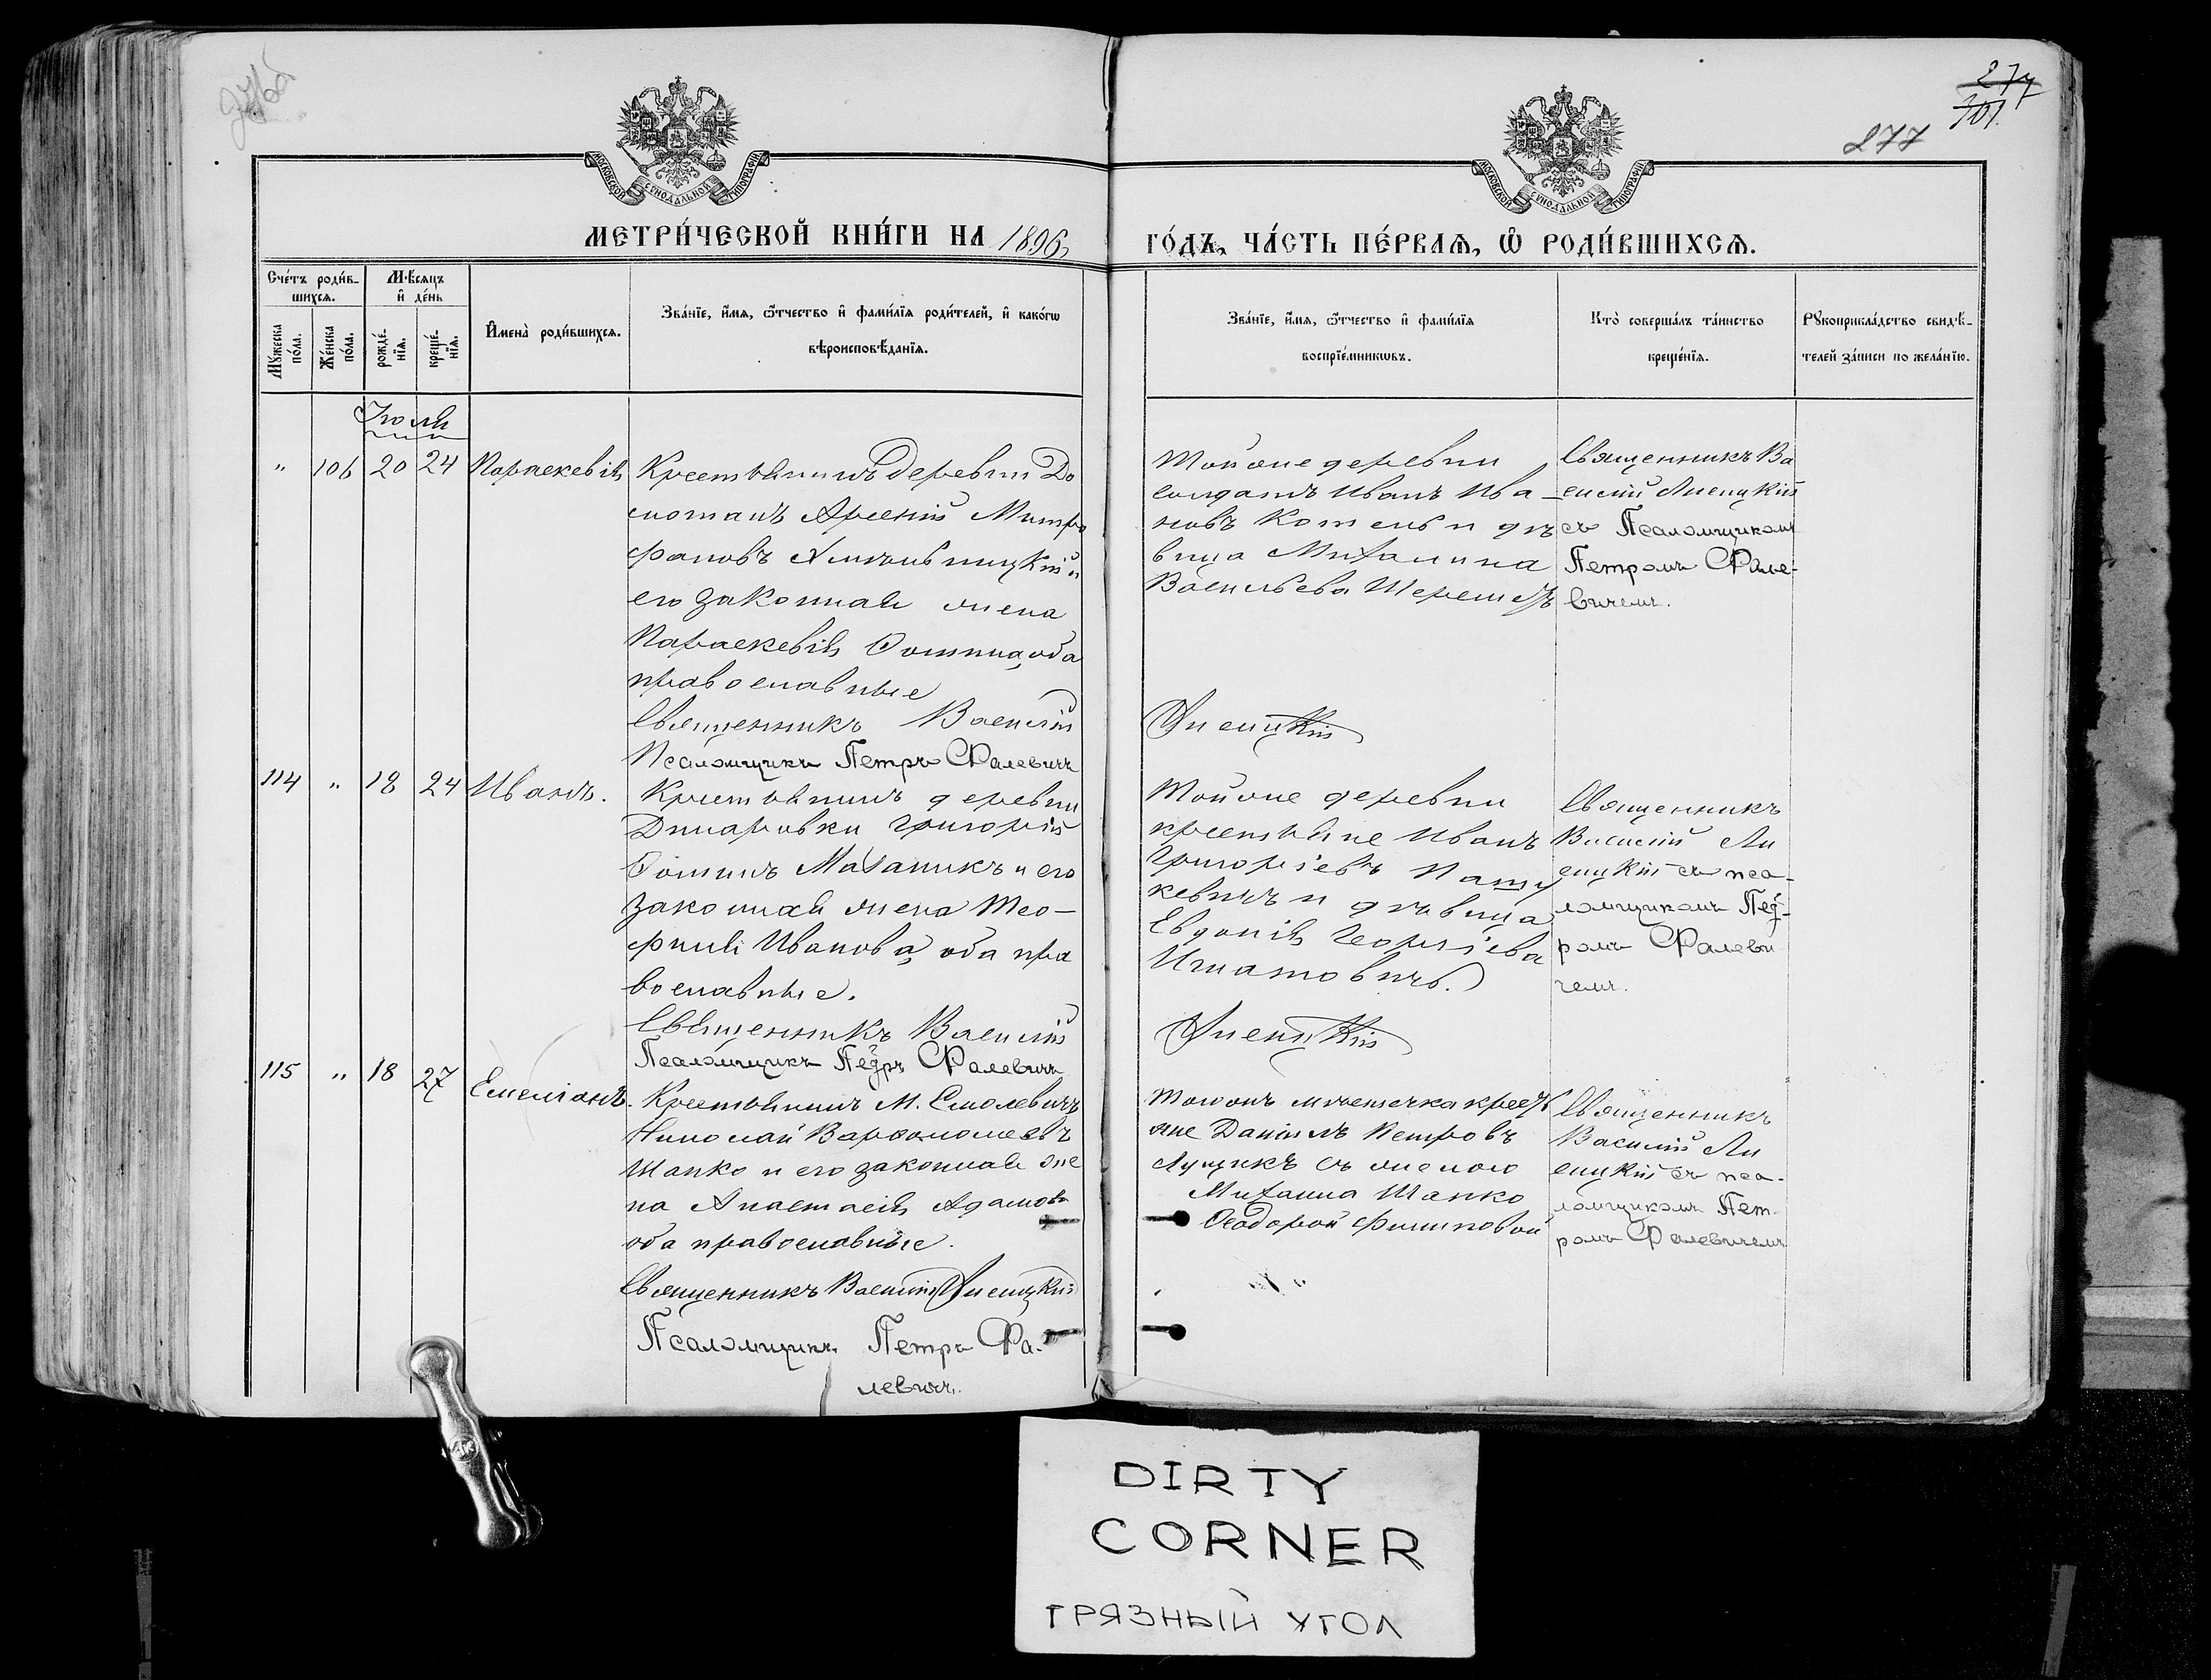 277
101.
277
МОСКОВСКОЙ СѴНОДАЛЬНОЙ ТИПОГРАФІИ
МОСКОВСКОЙ СѴНОДАЛЬНОЙ ТИПОГРАФІИ
МЕТРИ́ЧЕСКОЙ КНИ́ГИ НА 1896
ГО́ДЪ, ЧА́СТЬ ПЕ́РВАѦ, Ѡ҆ РОДИ́ВШИХСѦ.
Сче́тъ роди́в-
шихсѧ.
Мꙋ́жеска
по́ла.
Же́нска
по́ла.
Мѣ́сѧцъ
и҆ де́нь
рожде́-
нїѧ.
креще́-
нїѧ.
И҆мена̀ роди́вшихсѧ.
Зва́нїе, и҆́мѧ, ѻ҆́тчество и҆ фами́лїѧ роди́телей, и҆ како́гѡ
вѣроисповѣ́данїѧ.
Зва́нїе, и҆́мѧ, ѻ҆́тчество и҆ фами́лїѧ
воспрїе́мникѡвъ.
Кто̀ соверша́лъ та́инство
креще́нїѧ.
Рꙋкоприкла́дство свидѣ́-
телей за́писи по жела́нїю.
Іюль
" 106 20 24 Параскевія
Крестьянинъ деревни До
Арсеній Митро
фановъ и
его законная жена
Параскевія Ѳомина, оба
православные
Священникъ Василій
Псаломщикъ Петръ Фалевичъ
Тойже деревни
солдатъ Иванъ Ива-
новъ и дѣ
вица Михалина
Васильева
Лисицкій
Священникъ Ва
силій Лисицкій
съ Псаломщикомъ
Петромъ Фале-
вичемъ.
114 " 18 24 Иванъ.
Крестьянинъ деревни
Григорій
Ѳоминъ Маханикъ и его
законная жена Тео-
филія Иванова, оба пра
вославные.
Священникъ Василій
Псаломщикъ Петръ Фалевичъ
Тойже деревни
крестьяне Иванъ
Григорьевъ Пашу
кевичъ и дѣвица
Евдокія Георгіева
Игнатовичъ.
Лисицкій
Священникъ
Василій Ли
сицкій съ пса-
ломщикомъ Пет-
ромъ Фалеви
чемъ.
115 " 18 27 Емеліанъ.
Крестьянинъ М. Смолевичъ
Николай Варѳоломеевъ
Шапко и его законная же
на Анастасія Адамова
оба православные.
Священникъ Василій Лисицкій
Псаломщикъ Петръ Фа-
левичъ.
Тогожъ мѣстечка крестья
не Даніилъ Петровъ
Лущикъ съ женою
Михаила Шапко
Ѳеодорой Филиповой
Священникъ
Василій Ли
сицкій съ пса-
ломщикомъ Пет-
ромъ Фалевичемъ
DIRTY
CORNER
ГРЯЗНЫЙ УГОЛ